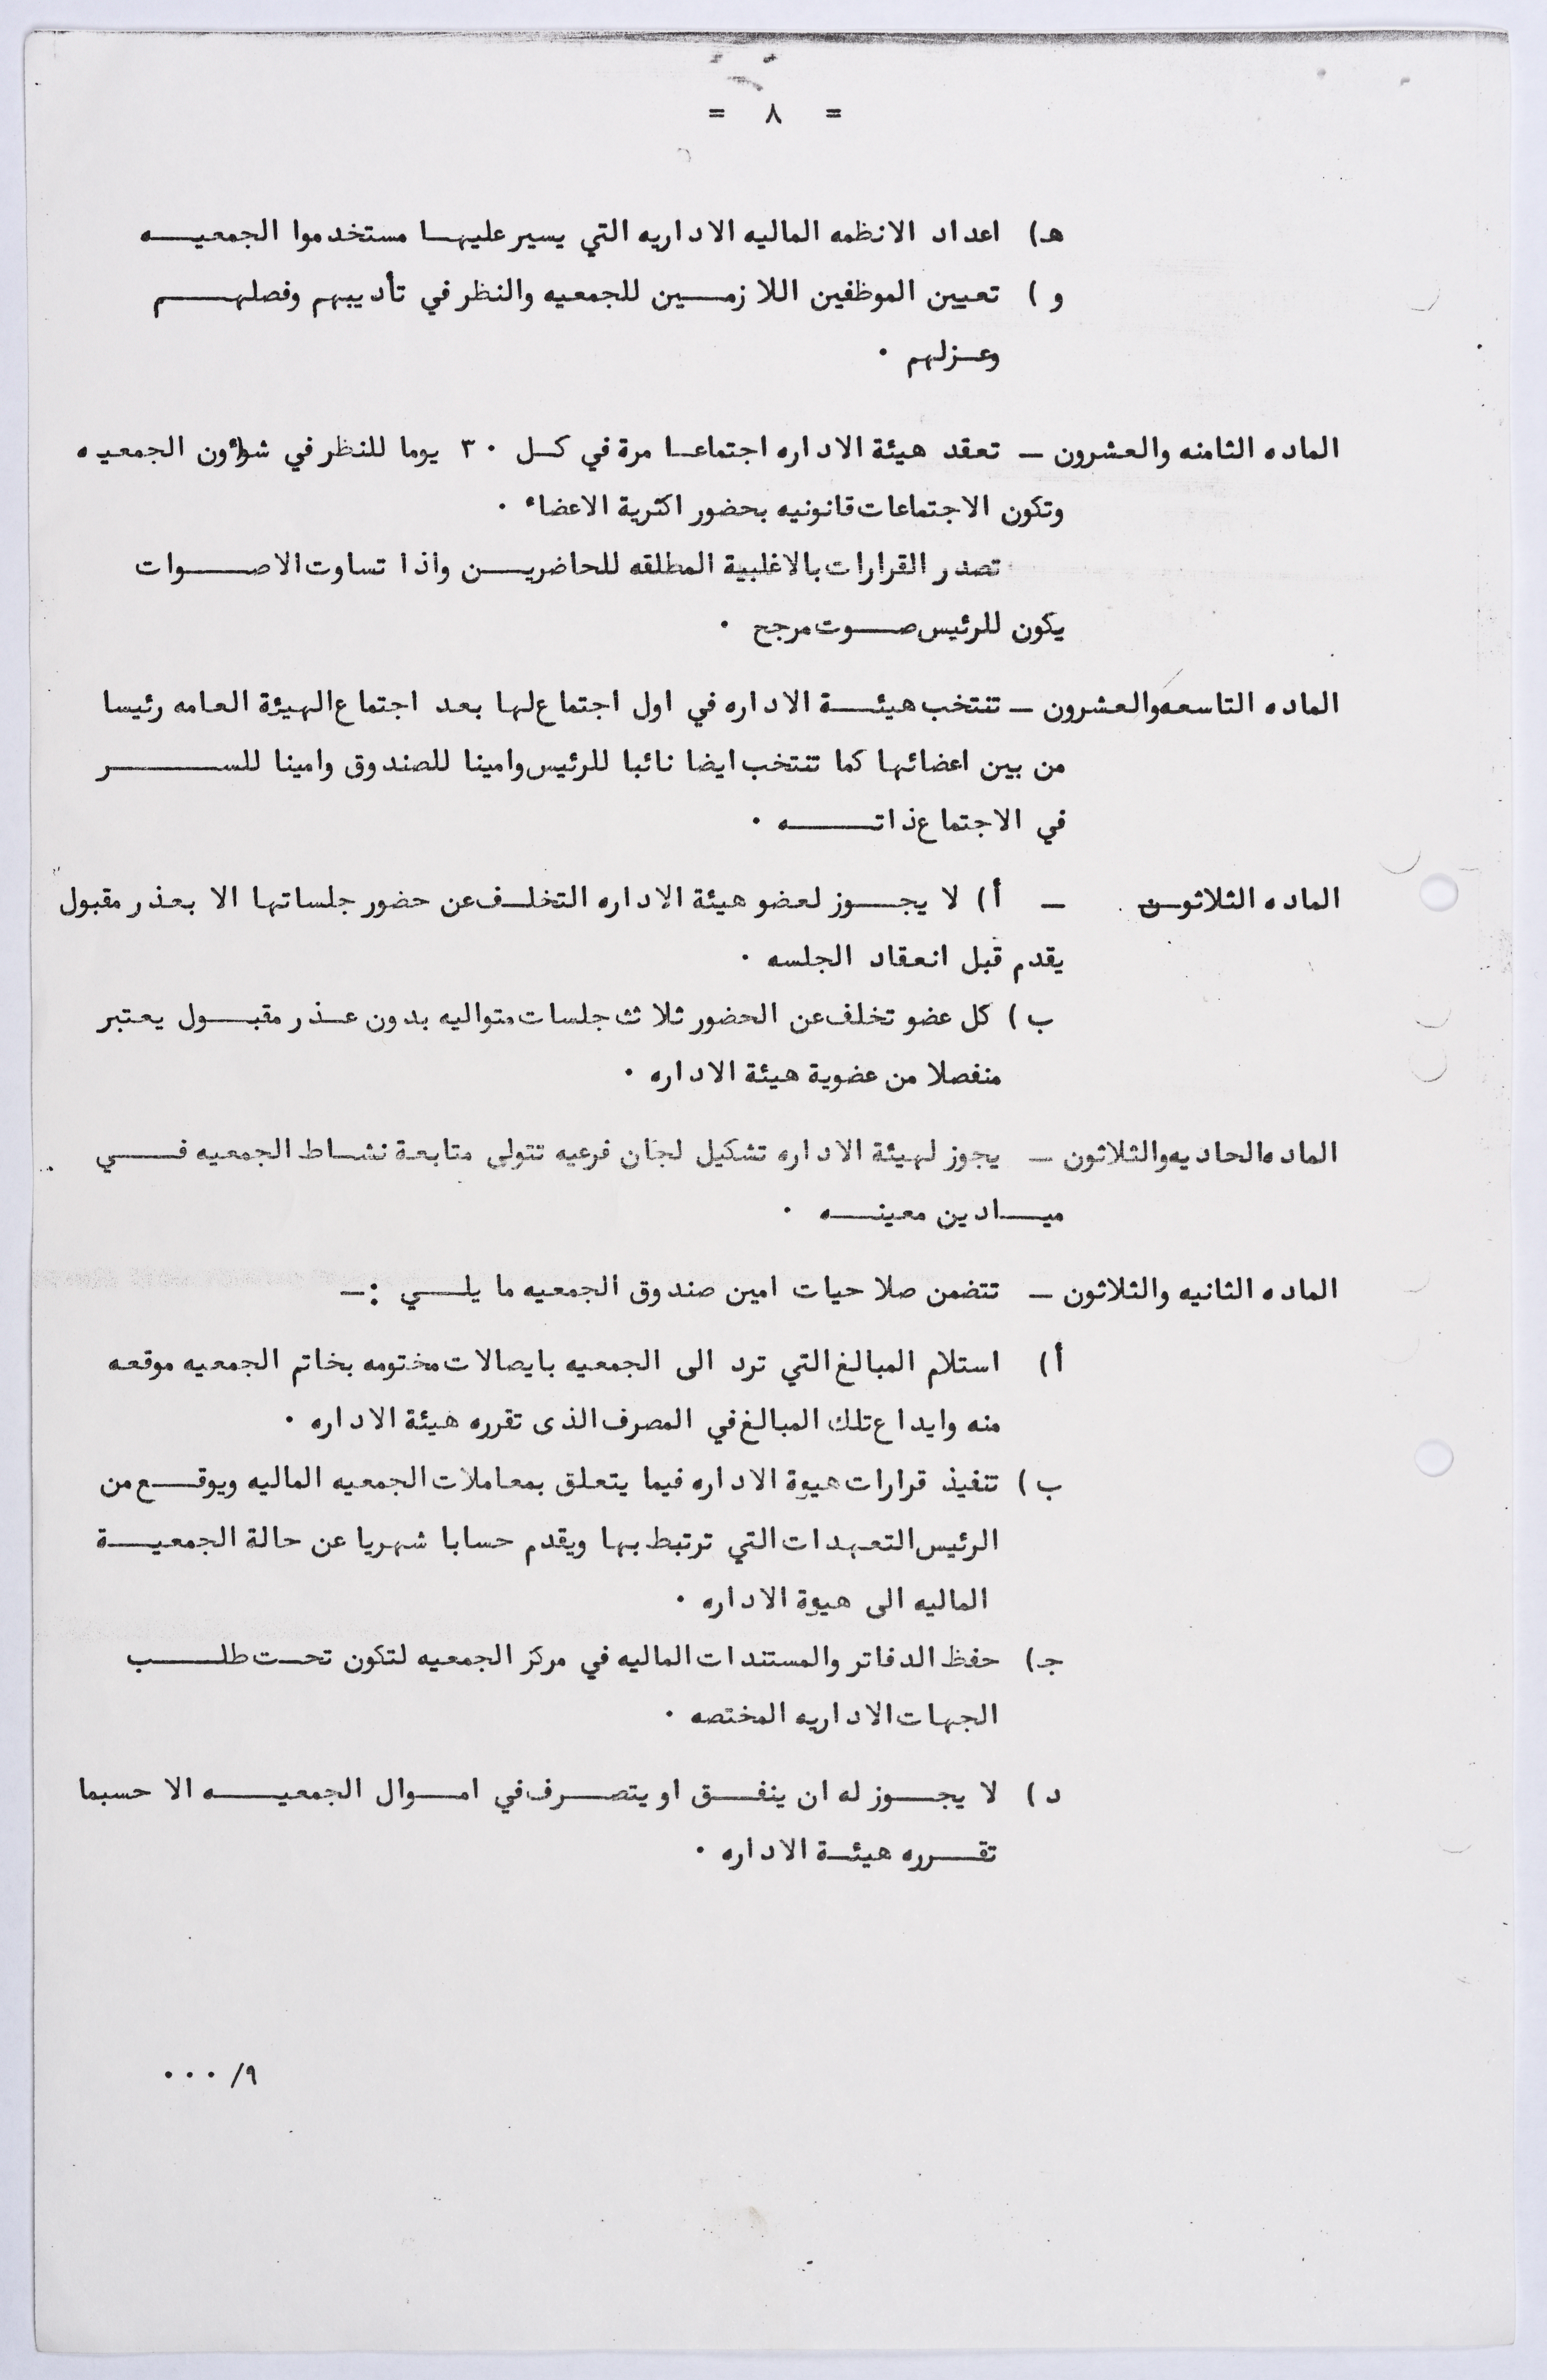 = ٨ =
هـ) اعداد الانظمه الماليه الاداريه التي يسير عليها مستخدموا الجمعيه
و ) تعيين الموظفين اللازمين للجمعيه والنظر في تأديبهم وفصلهم
وعزلهم ٠
الماده الثامنه والعشرون ـ تعقد هيئة الاداره اجتماعا مرة في كل ٣٠ يوما للنظر في شؤون الجمعيه
وتكون الاجتماعات قانونيه بحضور اكثرية الاعضاء ٠
تصدر القرارات بالاغلبية المطلقه للحاضرين واذا تساوت الاصوات
يكون للرئيس صوت مرجح ٠
الماده التاسعه والعشرون ـ تنتخب هيئة الاداره في اول اجتماع لها بعد اجتماع الهيئة العامه رئيسا
من بين اعضائها كما تنتخب ايضا نائبا للرئيس وامينا للصندوق وامينا للسر
في الاجتماع ذاته ٠
الماده الثلاثون ـ أ) لا يجوز لعضو هيئة الاداره التخلف عن حضور جلساتها الا بعذر مقبول
يقدم قبل انعقاد الجلسه ٠
ب ) كل عضو تخلف عن الحضور ثلاث جلسات متواليه بدون عذر مقبول يعتبر
منفصلا من عضوية هيئة الاداره ٠
الماده الحاديه والثلاثون ـ يجوز لهيئة الاداره تشكيل لجان فرعيه تتولى متابعة نشاط الجمعيه في
ميادين معينه ٠
الماده الثانيه والثلاثون ـ تتضمن صلاحيات امين صندوق الجمعيه ما يلي :ـ
أ) استلام المبالغ التي ترد الى الجمعيه بايصالات مختومه بخاتم الجمعيه موقعه
منه وايداع تلك المبالغ في المصرف الذى تقرره هيئة الاداره ٠
ب ) تنفيذ قرارات هيوة الاداره فيما يتعلق بمعاملات الجمعيه الماليه ويوقع من
الرئيس التعهدات التي ترتبط بها ويقدم حسابا شهريا عن حالة الجمعية
الماليه الى هيوة الاداره ٠
جـ) حفظ الدفاتر والمستندات الماليه في مركز الجمعيه لتكون تحت طلب
الجهات الاداريه المختصه ٠
د ) لا يجوز له ان ينفق او يتصرف في اموال الجمعيه الا حسبما
تقرره هيئة الاداره ٠
٩/ ٠٠٠